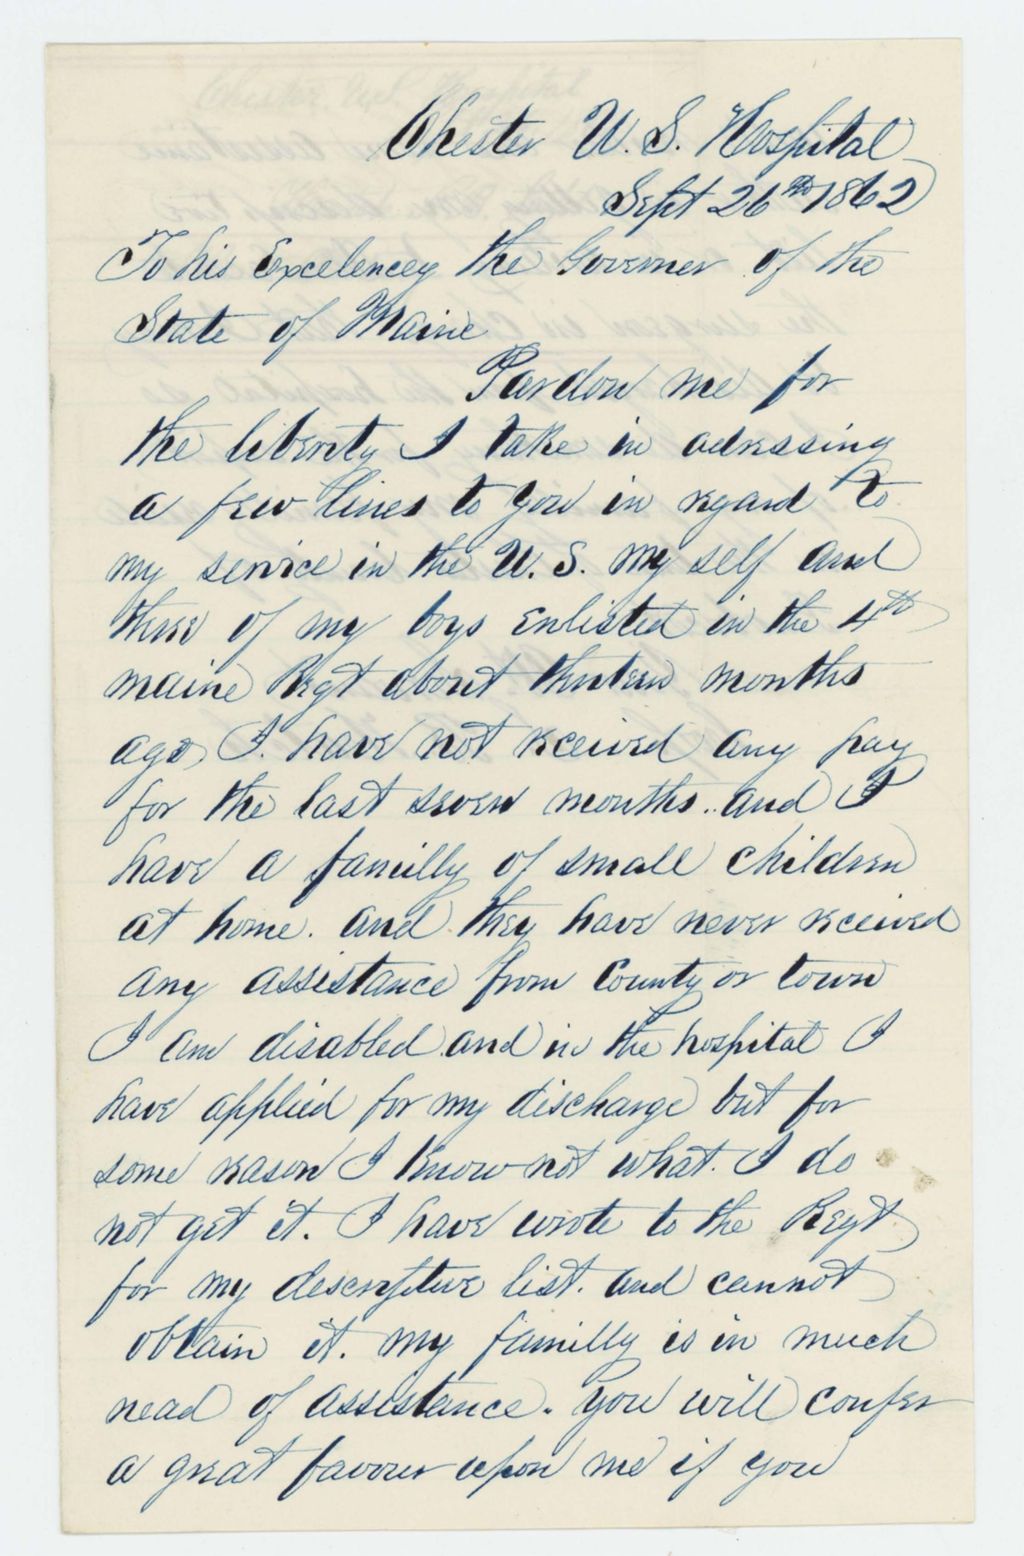 Chester U. S. Hospital
Sept 26th 1862
To his Excelencey the Governer of the
State of Maine
Pardon me for
the liberity I take in adressing
a few lines to you in regard to
my service in the U. S. my self and
three of my boys enlisted in the 4th
maine Regt about thirteen months
ago, I have not received any pay
for the last seven months. and I
have a familly of small children
at home. and they have never received
any assistance from County or town
I am disabled and in the hospital I
have applied for my discharge but for
some reason I know not what. I do
not get it. I have wrote to the Regt
for my descriptive list. and cannot
obtain it. my familly is in much
nead of assistance. you will confer
a great favour upon me if you